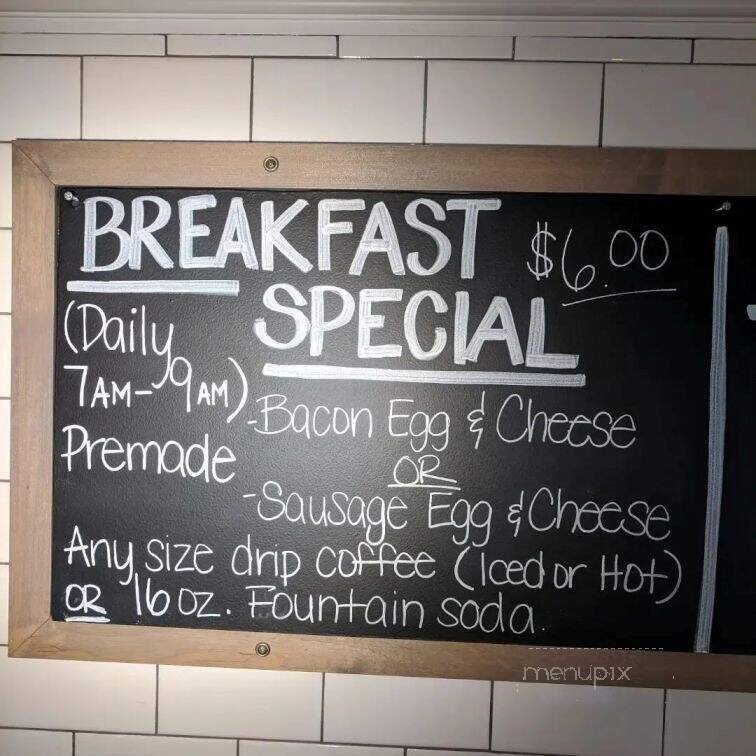 BREAKFAST $6.00
SPECIAL
(Daily
7AM-9AM)
Premade
-Bacon Egg & Cheese
OR
-Sausage Egg & Cheese
Any size drip coffee (Iced or Hot)
OR 16 oz. Fountain soda.
menupix